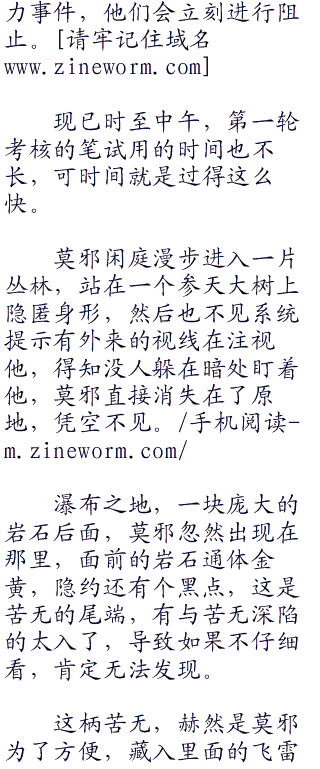 力事件，他们会立刻进行阻
止。[请牢记住域名
www.zineworm.com]
现已时至中午，第一轮
考核的笔试用的时间也不
长，可时间就是过得这么
快。
莫邪闲庭漫步进入一片
丛林，站在一个参天大树上
隐匿身形，然后也不见系统
提示有外来的视线在注视
他，得知没人躲在暗处盯着
他，莫邪直接消失在了原
地，凭空不见。/手机阅读-
m.zineworm.com/
瀑布之地，一块庞大的
岩石后面，莫邪忽然出现在
那里，面前的岩石通体金
黄，隐约还有个黑点，这是
苦无的尾端，有与苦无深陷
的太入了，导致如果不仔细
看，肯定无法发现。
这柄苦无，赫然是莫邪
为了方便，藏入里面的飞雷